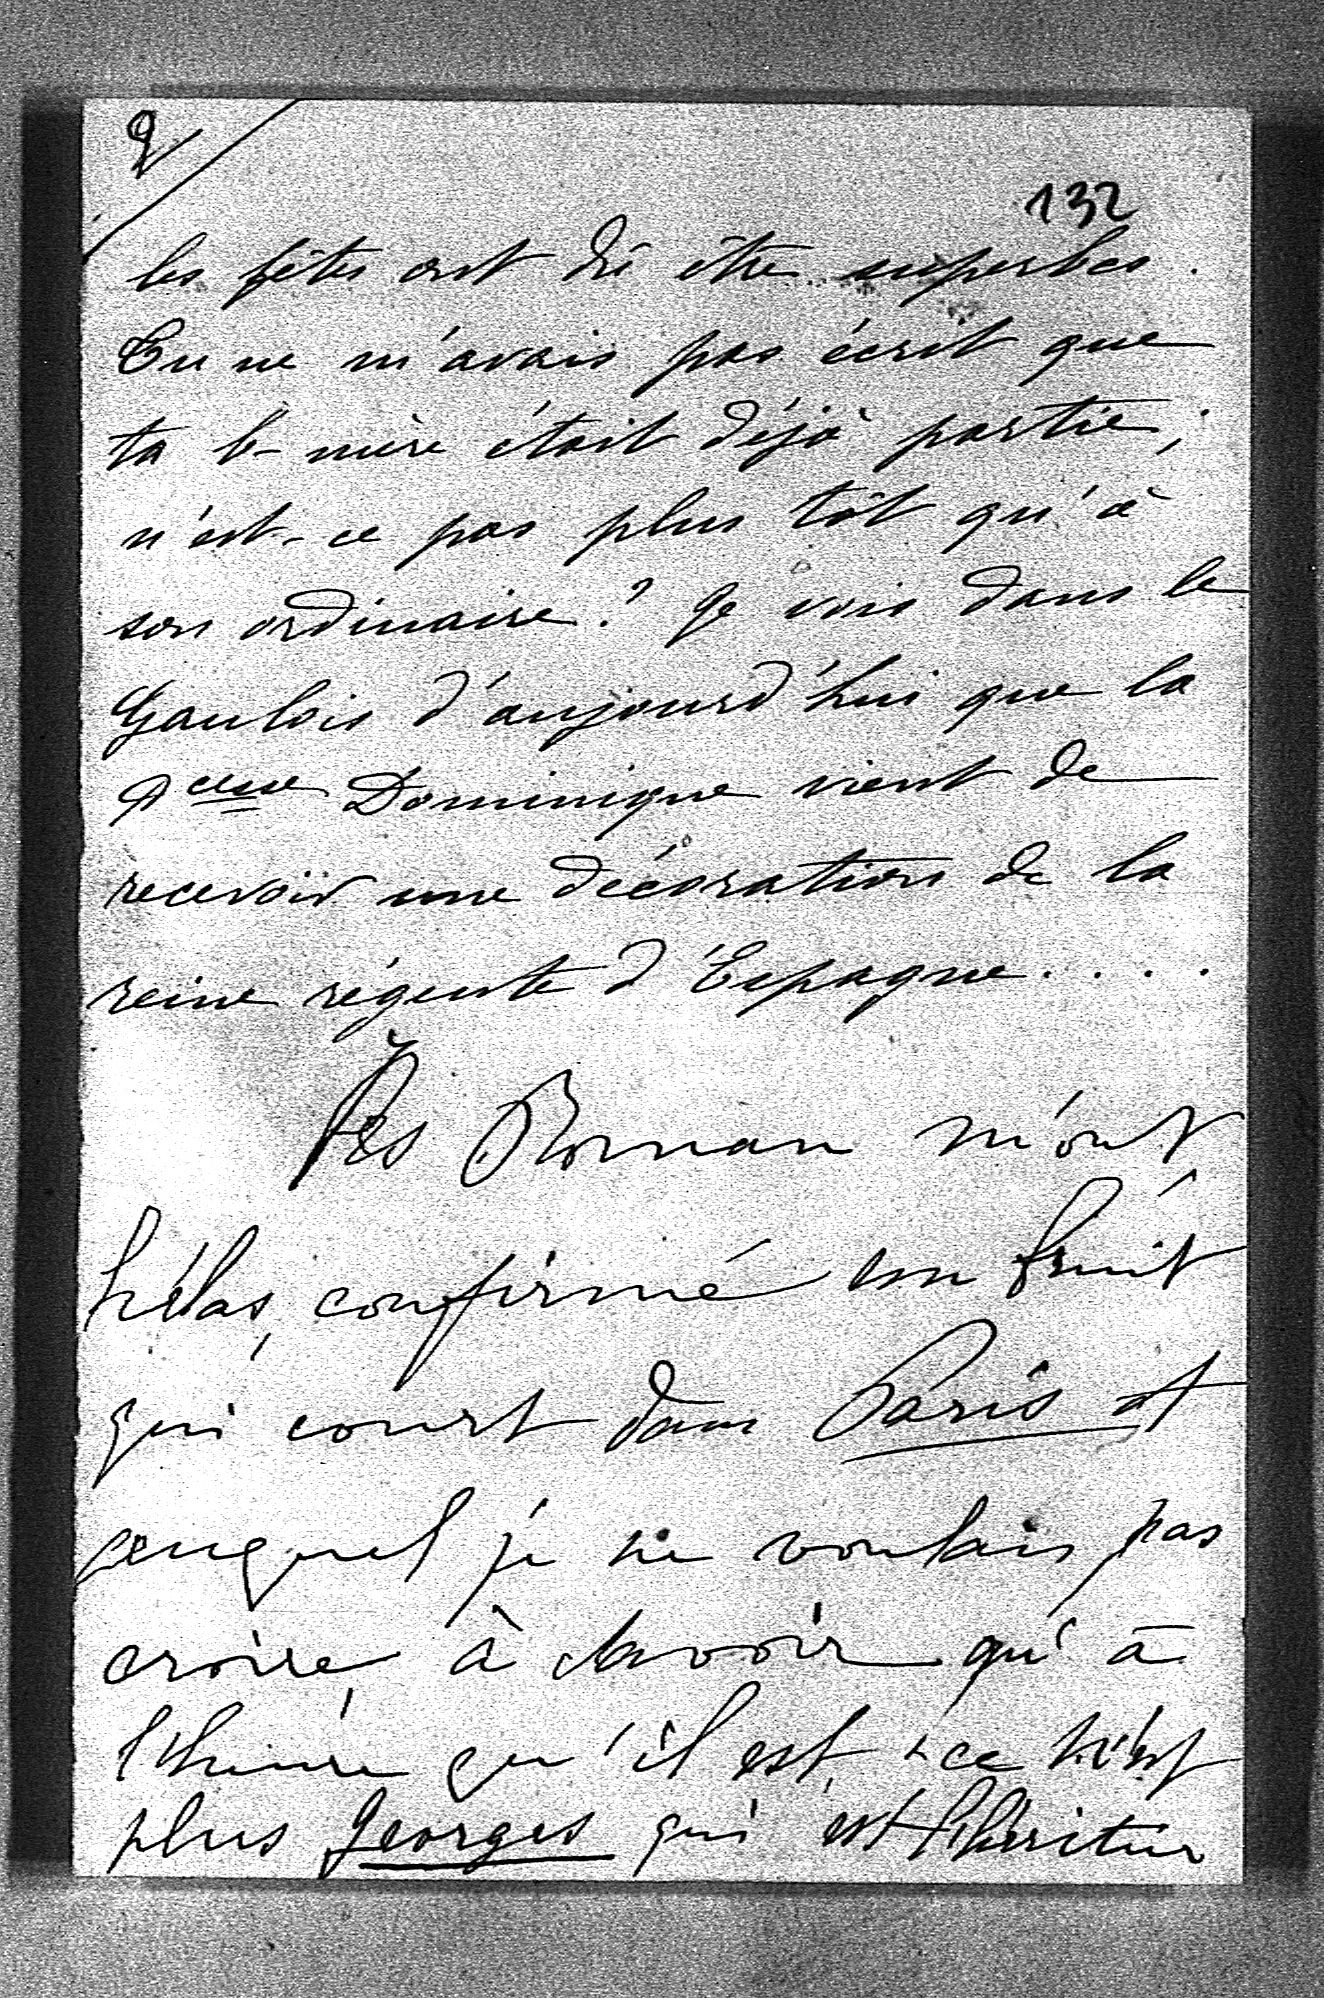 2/
132
les fêtes ont dû être superbes.
Tu ne m'avais pas écrit que
ta b-mère était déjà partie;
n'est-ce pas plus tôt qu'à
son ordinaire? Je vois dans le
Gaulois d'aujourd'hui que la
Pcesse Dominique vient de
recevoir une décoration de la
reine régente d'Espagne....
Les Roman m'ont
hélas, confirmé un bruit
qui court dans Paris et
auquel je ne voulais pas
croire à savoir qu'à
l'heure qu'il est, ce n'est
plus Georges qui est l'héritier